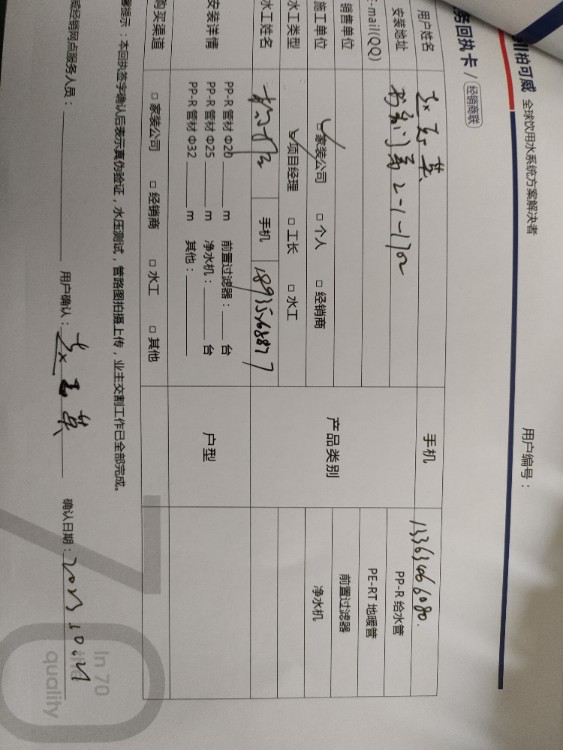 柏可威 全球饮用水系统方案解决者
务回执卡 / 经销商联
用户编号：
用户姓名 手机 13363466080.
安装地址 2-1-1702
-mail(QQ)
销售单位 产品类别 PP-R 给水管
PE-RT 地暖管
前置过滤器
净水机
施工单位 ☑家装公司 □ 个人 □ 经销商
水工类型 ☑项目经理 □ 工长 □ 水工
水工姓名 手机
安装详情 PP-R 管材 Φ20 ____ m 前置过滤器：____ 台
PP-R 管材 Φ25 ____ m 净水机：____ 台
PP-R 管材 Φ32 ____ m 其他：____
户型
购买渠道 □ 家装公司 □ 经销商 □ 水工 □ 其他
提示：本回执签字确认后表示真伪验证，水压测试，管路图拍摄上传，业主交割工作已全部完成。
威经销网点服务人员： 用户确认： 确认日期：
In 70
quality